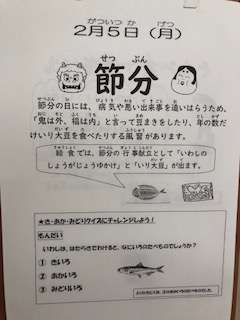 ２月５日（月）
節分
節分の日には、病気や悪い出来事を追いはらうため、
「鬼は外、福は内」と言って豆まきをしたり、年の数だ
けいり大豆を食べたりする風習があります。
給食では、節分の行事献立として「いわしの
しょうがじょうゆかけ」と「いり大豆」が出ます。
★き・あか・みどりクイズにチャレンジしよう！
もんだい
いわしは、はたらきでわけると、なにいろのたべものでしょうか？
① きいろ
② あかいろ
③ みどりいろ